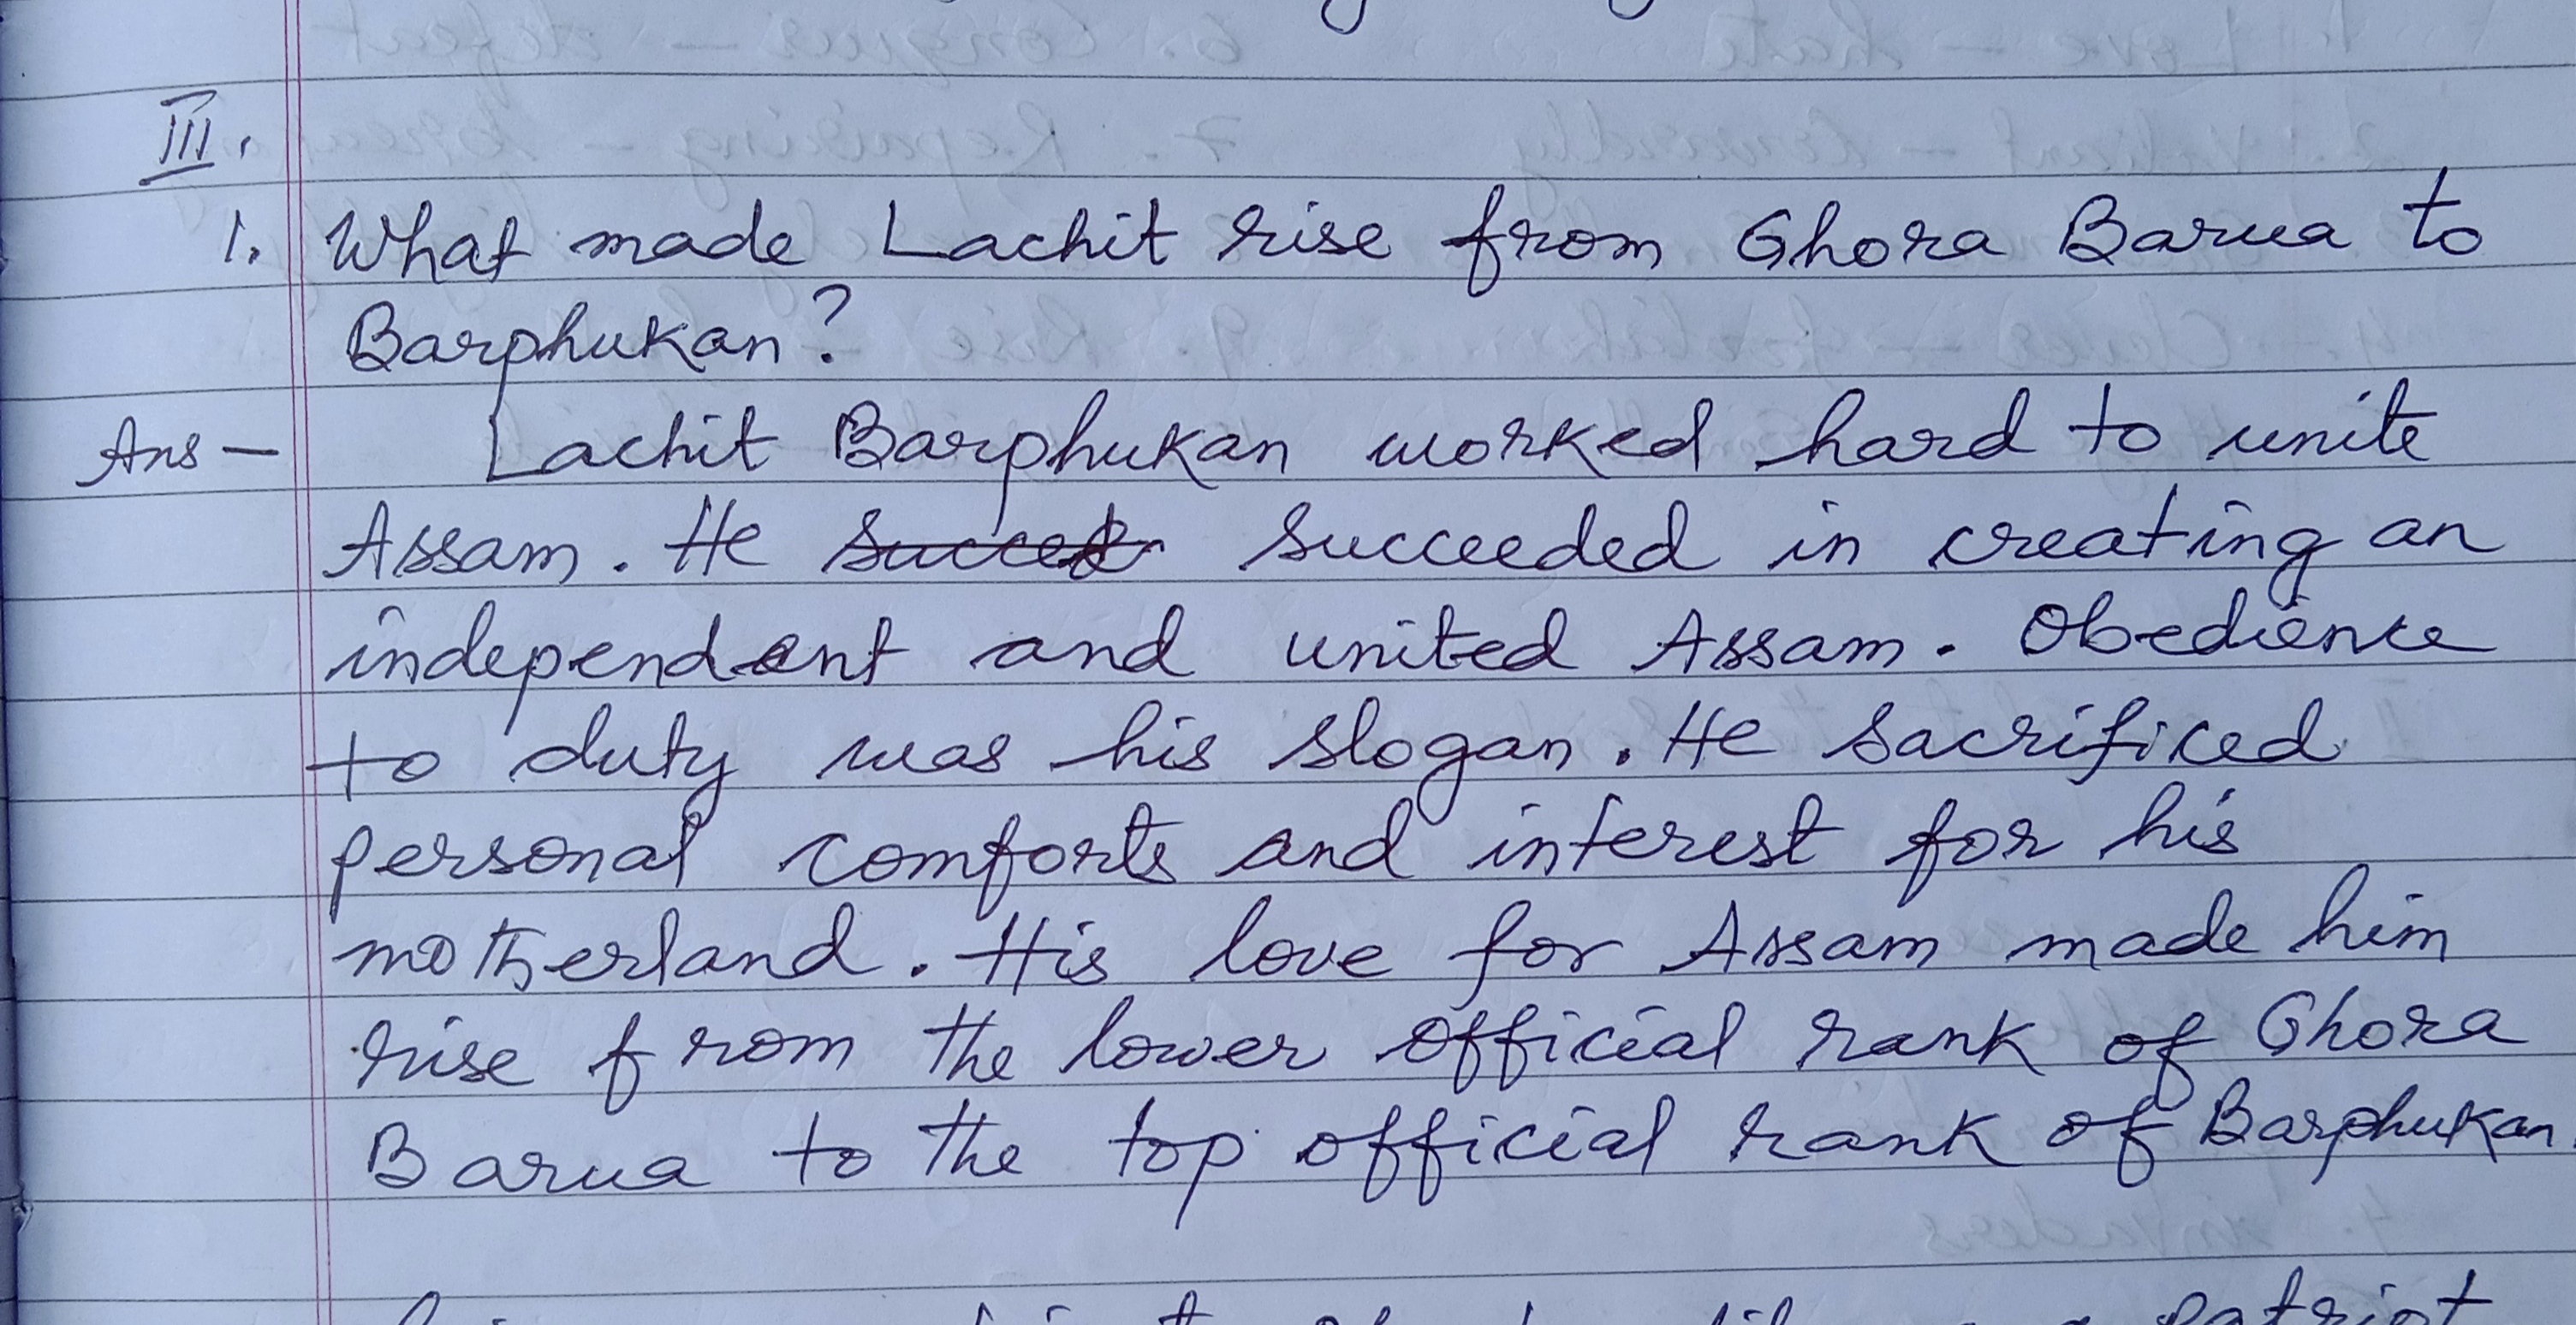 III.
1. What made Lachit rise from Ghora Barua to
Barphukan?
Ans - Lachit Barphukan worked hard to unite
Assam. He succeeded in creating an
independent and united Assam. Obedience
to duty was his slogan. He sacrificed
personal comforts and interest for his
motherland. His love for Assam made him
rise from the lower official rank of Ghora
Barua to the top official rank of Barphukan.
patriot